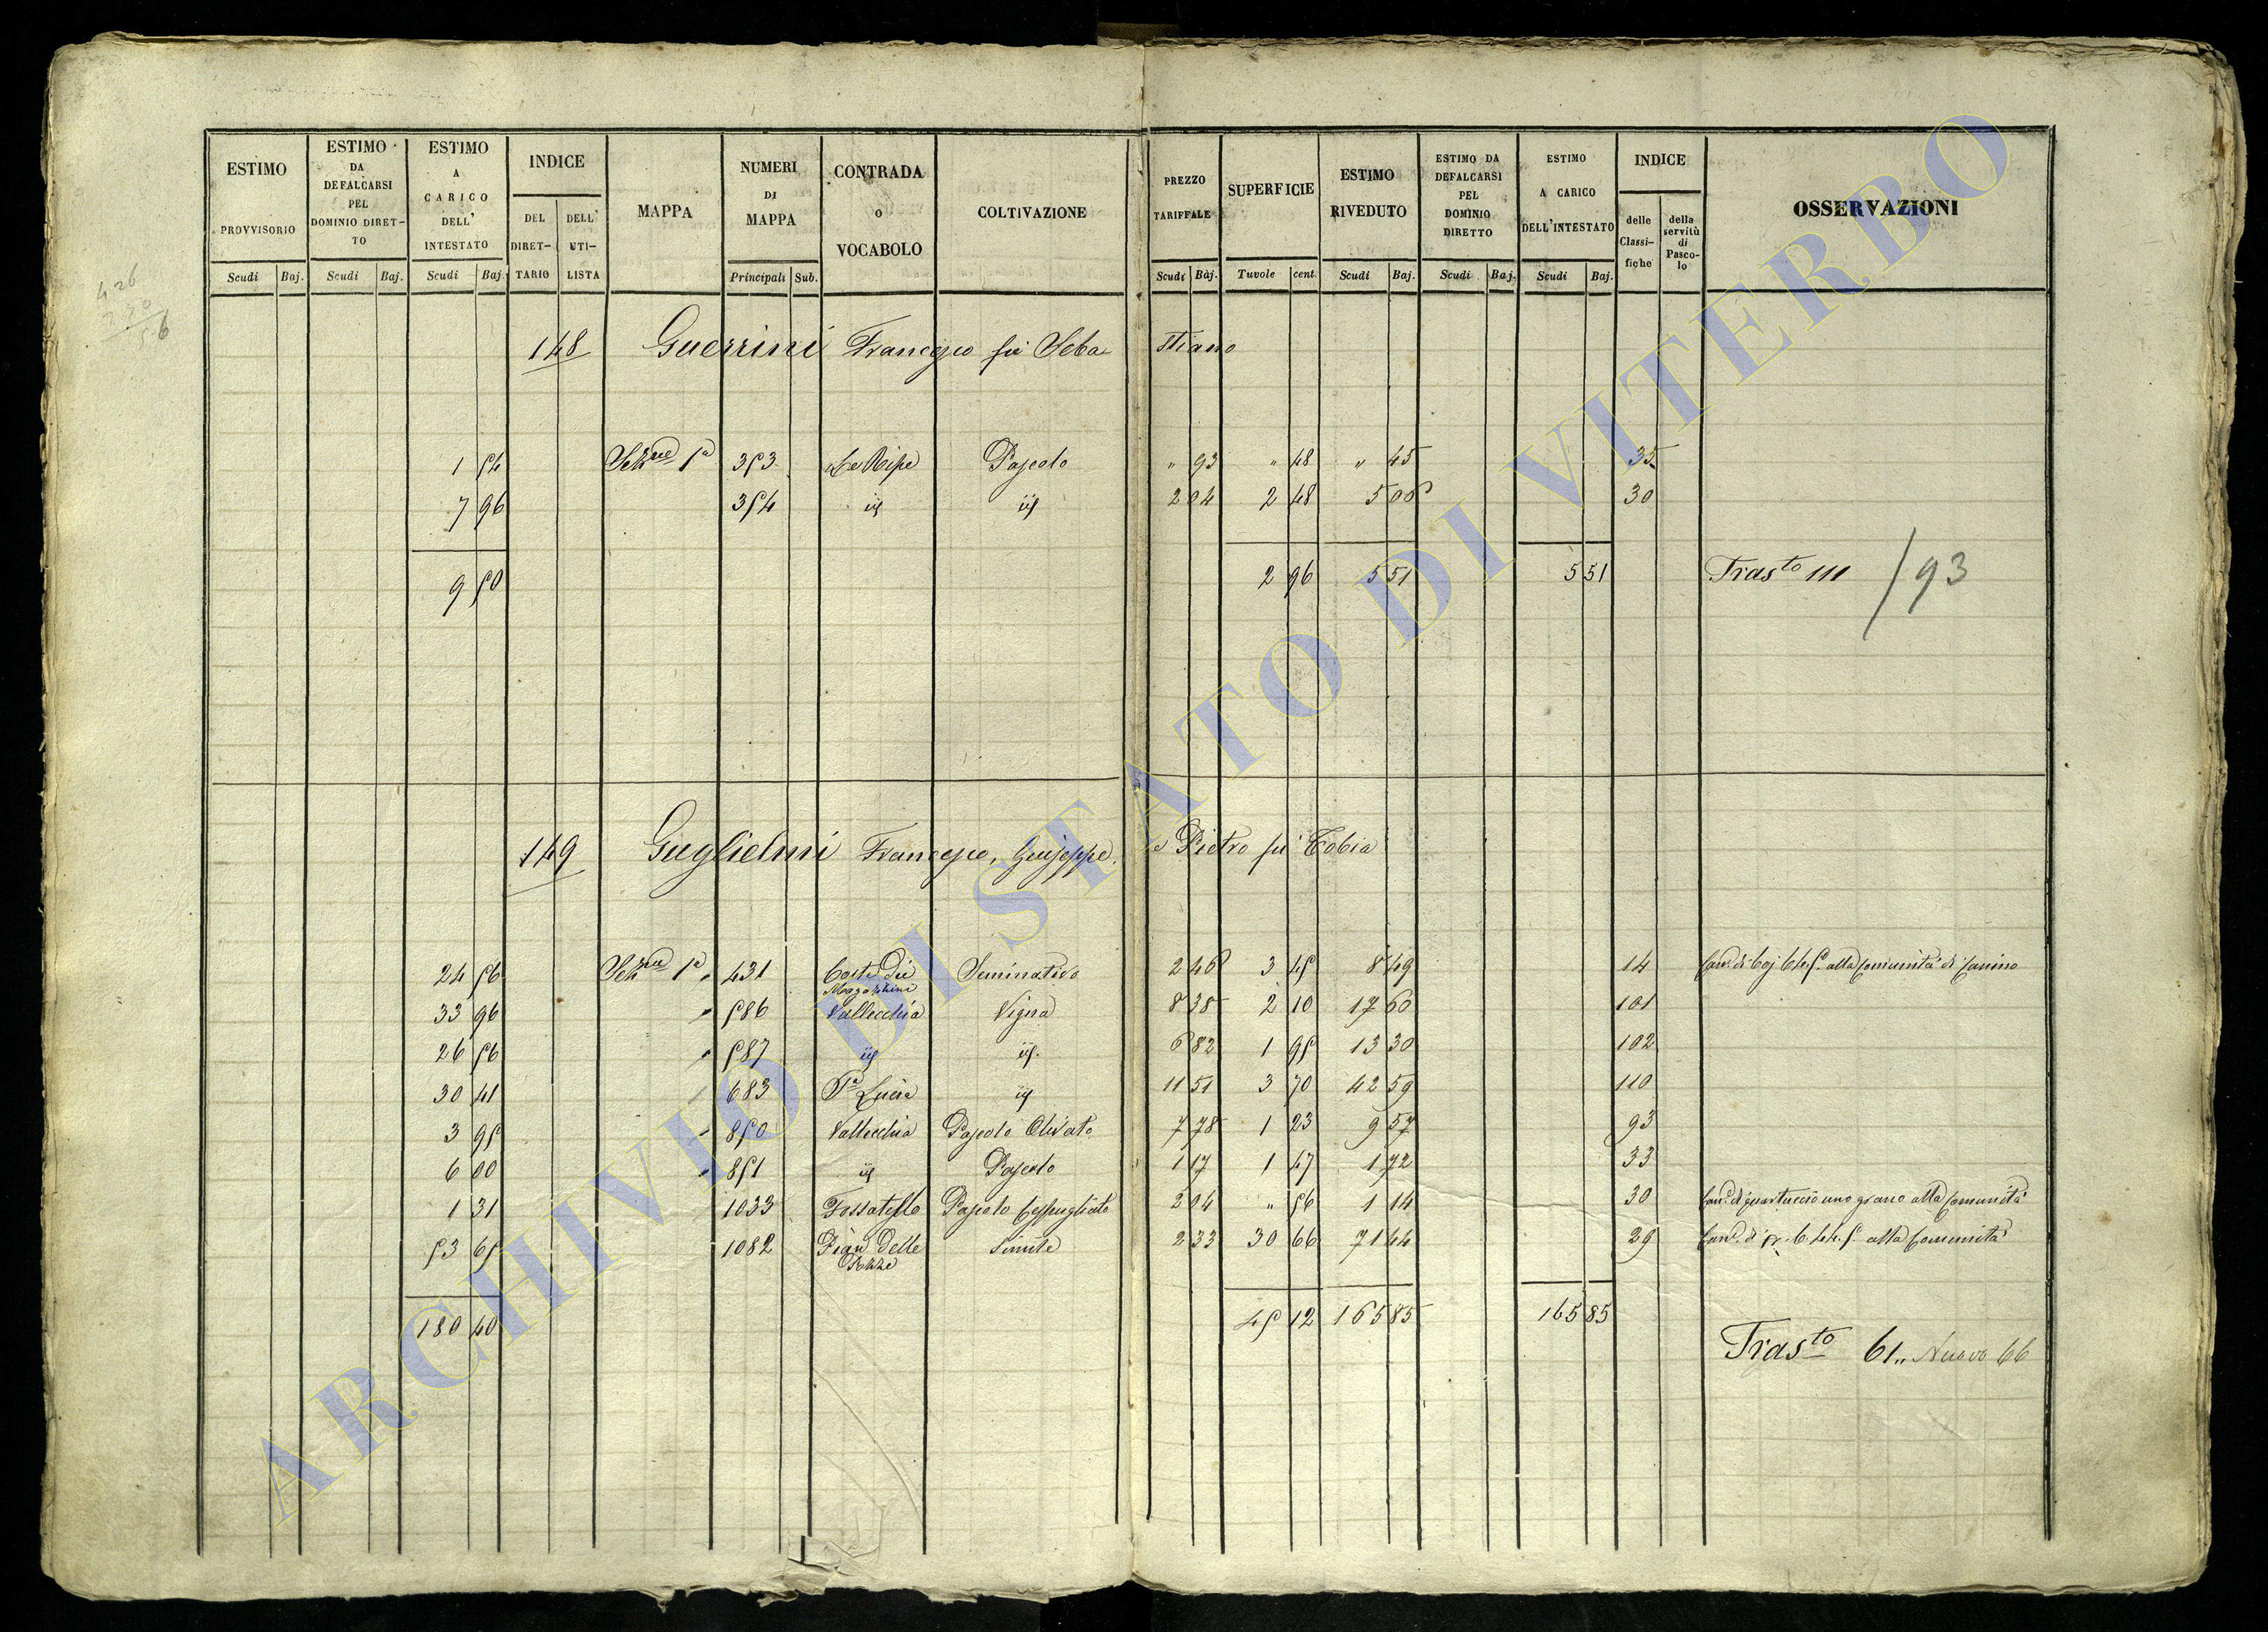 ESTIMO PROVVISORIO Scudi Baj.
ESTIMO DA DEFALCARSI PEL DOMINIO DIRET- TO Scudi Baj.
ESTIMO A CARICO DELL' INTESTATO Scudi Baj.
INDICE DEL DIRET- TARIO DELL' UTI- LISTA
MAPPA
NUMERI DI MAPPA Principali Sub.
CONTRADA O VOCABOLO
COLTIVAZIONE
PREZZO TARIFFALE Scudi Baj.
SUPERFICIE Tavole cent
ESTIMO RIVEDUTO Scudi Baj.
ESTIMO DA DEFALCARSI PEL DOMINIO DIRETTO Scudi Baj.
ESTIMO A CARICO DELL'INTESTATO Scudi Baj.
INDICE delle Classi- fiche della servitù di Pasco- lo
OSSERVAZIONI
148 Guerrini Francesco fù Seba stiano
1 54 Sez.ne 1a 353 Le Ripe Pascolo " 93 " 48 " 45 35
7 96 354 id id 2 04 2 48 5 06 30
9 50 2 96 5 51 5 51 Trasto 111 / 93
149 Guglielmi Francesco, Giuseppe, e Pietro fu Tobia
24 56 Sez.ne 1a 431 Coste Seminativo 2 46 3 45 8 49 14 alla Comunità di Canino
33 96 586 Vallecchia Vigna 8 38 2 10 17 60 101
26 56 587 id id. 6 82 1 95 13 30 102
30 41 683 Sa Lucia id 11 51 3 70 42 59 110
3 95 850 Vallecchia Pascolo Olivato 7 78 1 23 9 57 93
6 00 851 id Pascolo 1 17 1 47 1 72 33
1 31 1033 Fossatello Pascolo Cespugliato 2 04 " 56 1 14 30 Can.e di quartuccio uno grano alla Comunità
53 65 1082 Pian delle Simile 2 33 30 66 71 44 29 alla Comunità
180 40 45 12 165 85 165 85
Trasto 61,, Nuovo 66
ARCHIVIO DI STATO DI VITERBO